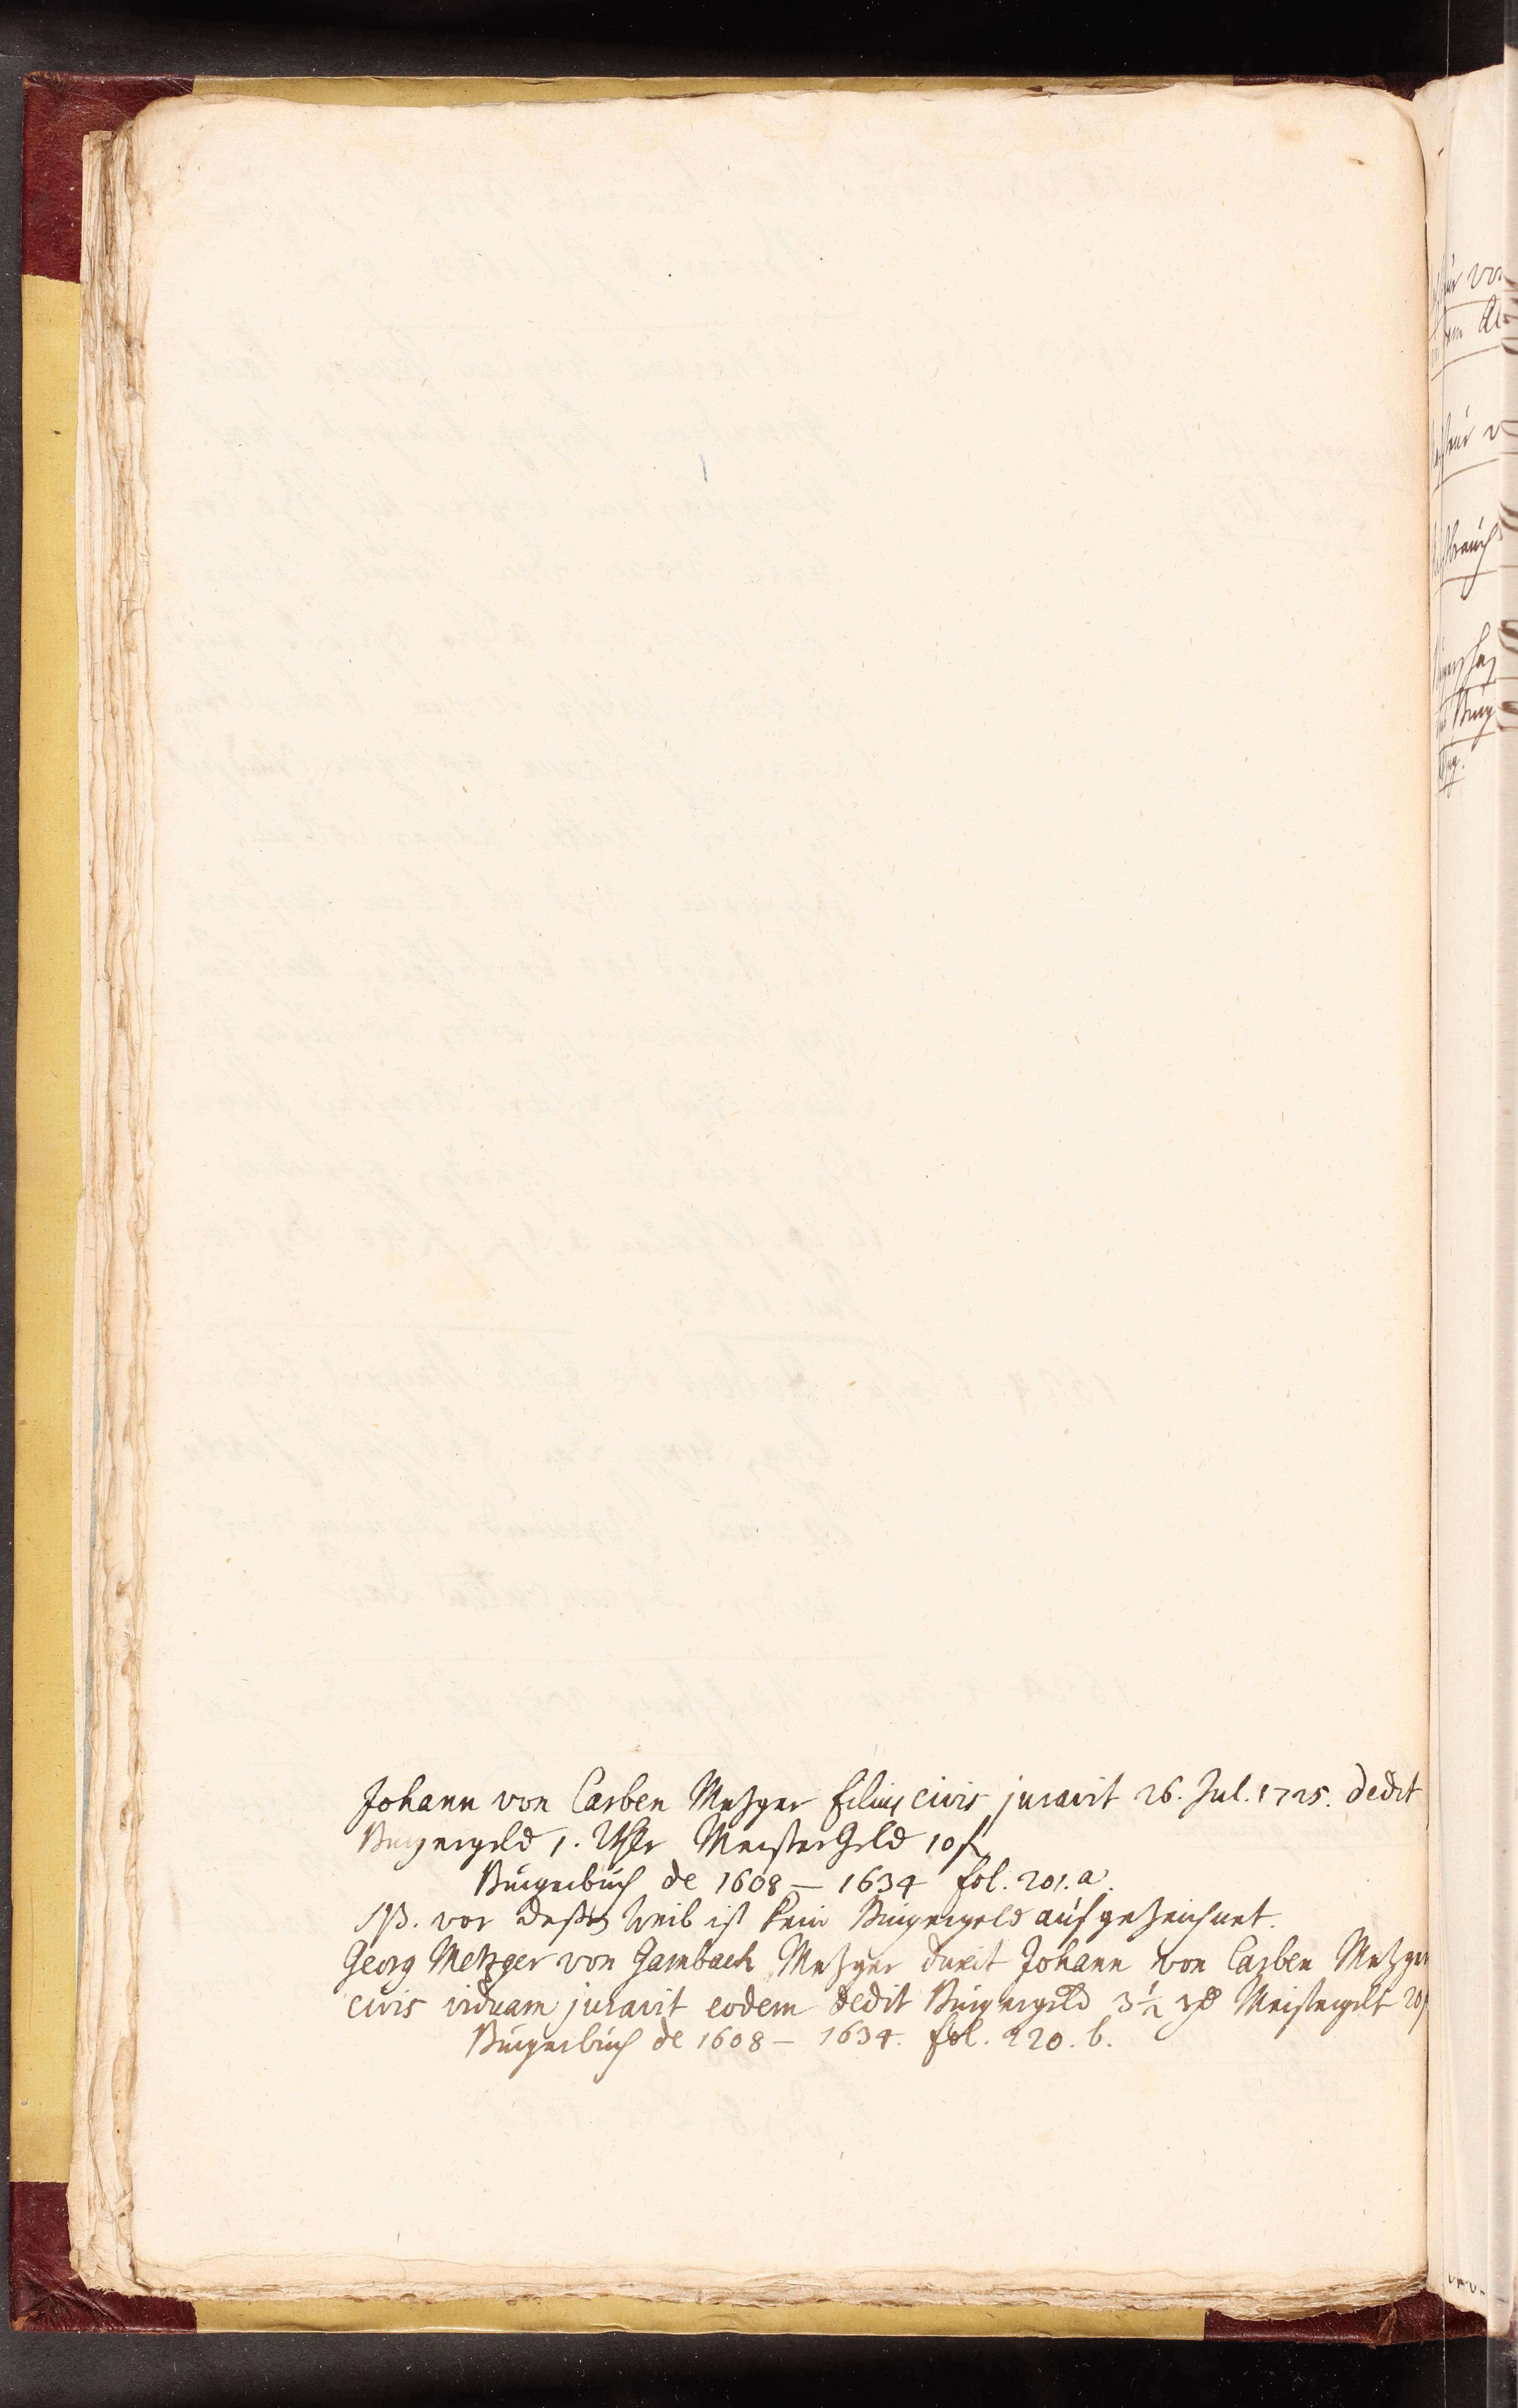 Johann von Carben Metzger filius civis juravit 26. Jul. 1725. dedit
Burgergeld 1. Rthlr Meister Geld 10 fl
Burgerbuch de 1608 – 1634 fol. 201. a.
NB. vor deßen Weib ist kein Burgergeld aufgezeichnet.
Georg Metzger von Gambach Metzger duxit Johann von Carben Metzger
civis viduam juravit eodem dedit Burgergeld 3 ½ Meistergelt 20
Burgerbuch de 1608 – 1634. fol. 220. b.